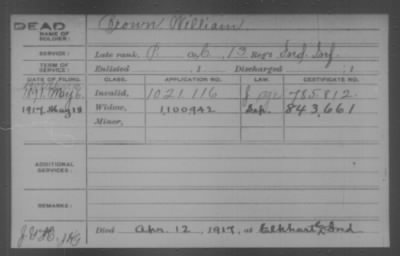 DEAD
NAME OF SOLDIER: Brown William
SERVICE: Late rank, P. Co. C, 13 Reg't Ind. Inf.
TERM OF SERVICE: Enlisted , 1 Discharged , 1
DATE OF FILING. CLASS. APPLICATION NO. LAW. CERTIFICATE NO.
May Invalid, 1021.116 785812.
1917, May 18 Widow, 1,100942 843,661
Minor,
ADDITIONAL SERVICES:
REMARKS:
Died Apr. 12, 1917, at Elkhart, Ind